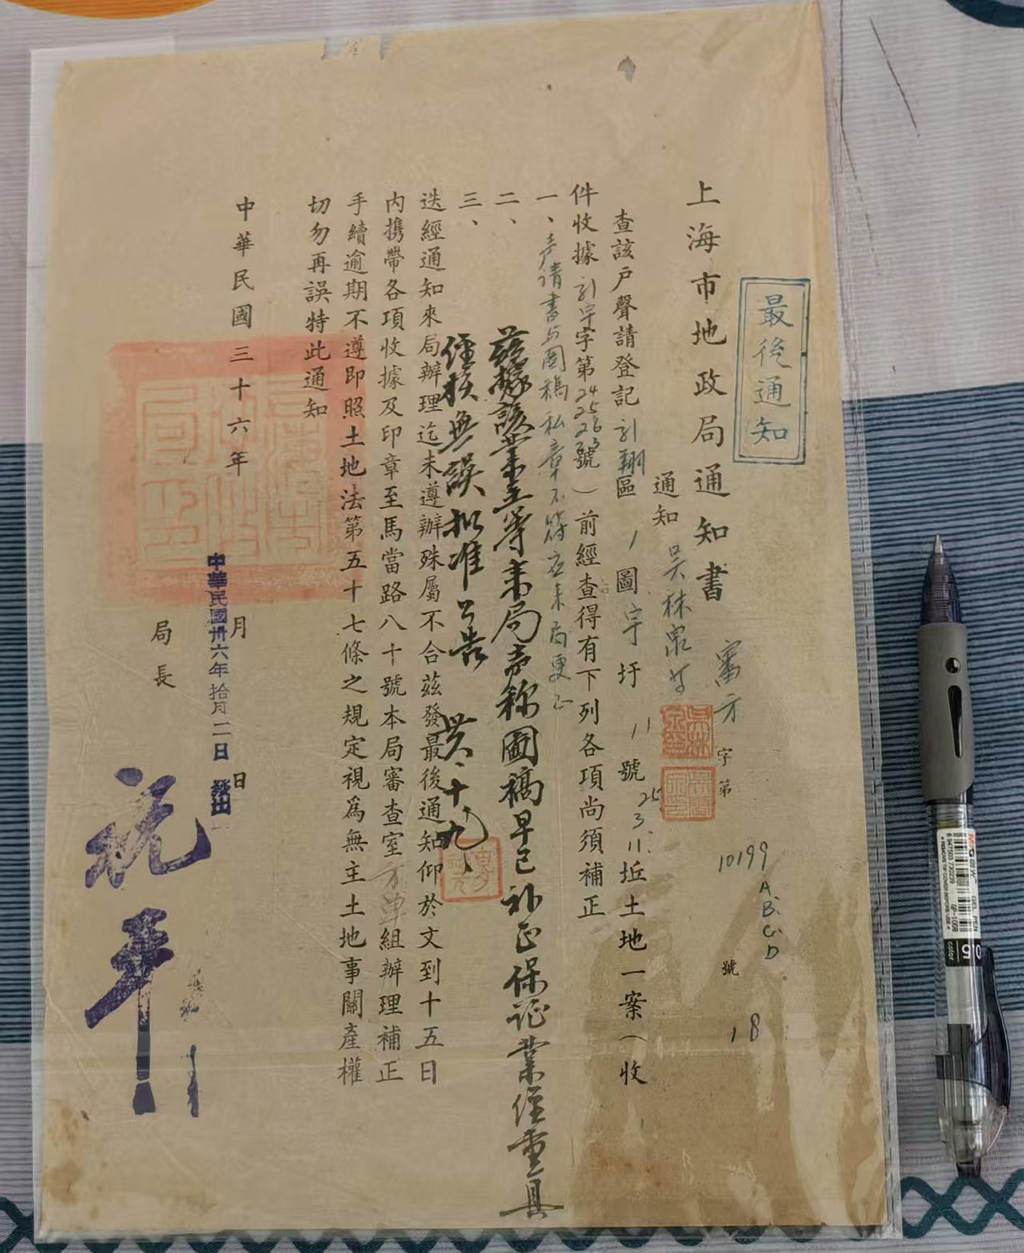 最後通知
上海市地政局通知書
審方字第10199 A.B.C.D號 18
通知 吳林泉等
查該戶聲請登記引翔區1圖宇圩11號 25 3.11.坵土地一案（收
件收據引宇字第24 25 26 號）前經查得有下列各項尚須補正
一、声請書与圖稿私章不符应来局更正
二、
三、
茲據該業主等来局声称圖稿早已补正保证業经重具
经核無误拟准公告 十、九、
迭經通知來局辦理迄未遵辦殊屬不合茲發最後通知仰於文到十五日
內携帶各項收據及印章至馬當路八十號本局審查室方單組辦理補正
手續逾期不遵即照土地法第五十七條之規定視爲無主土地事關產權
切勿再誤特此通知
中華民國三十六年 月 日
中華民國卅六年拾月二日發出
局長
祝平